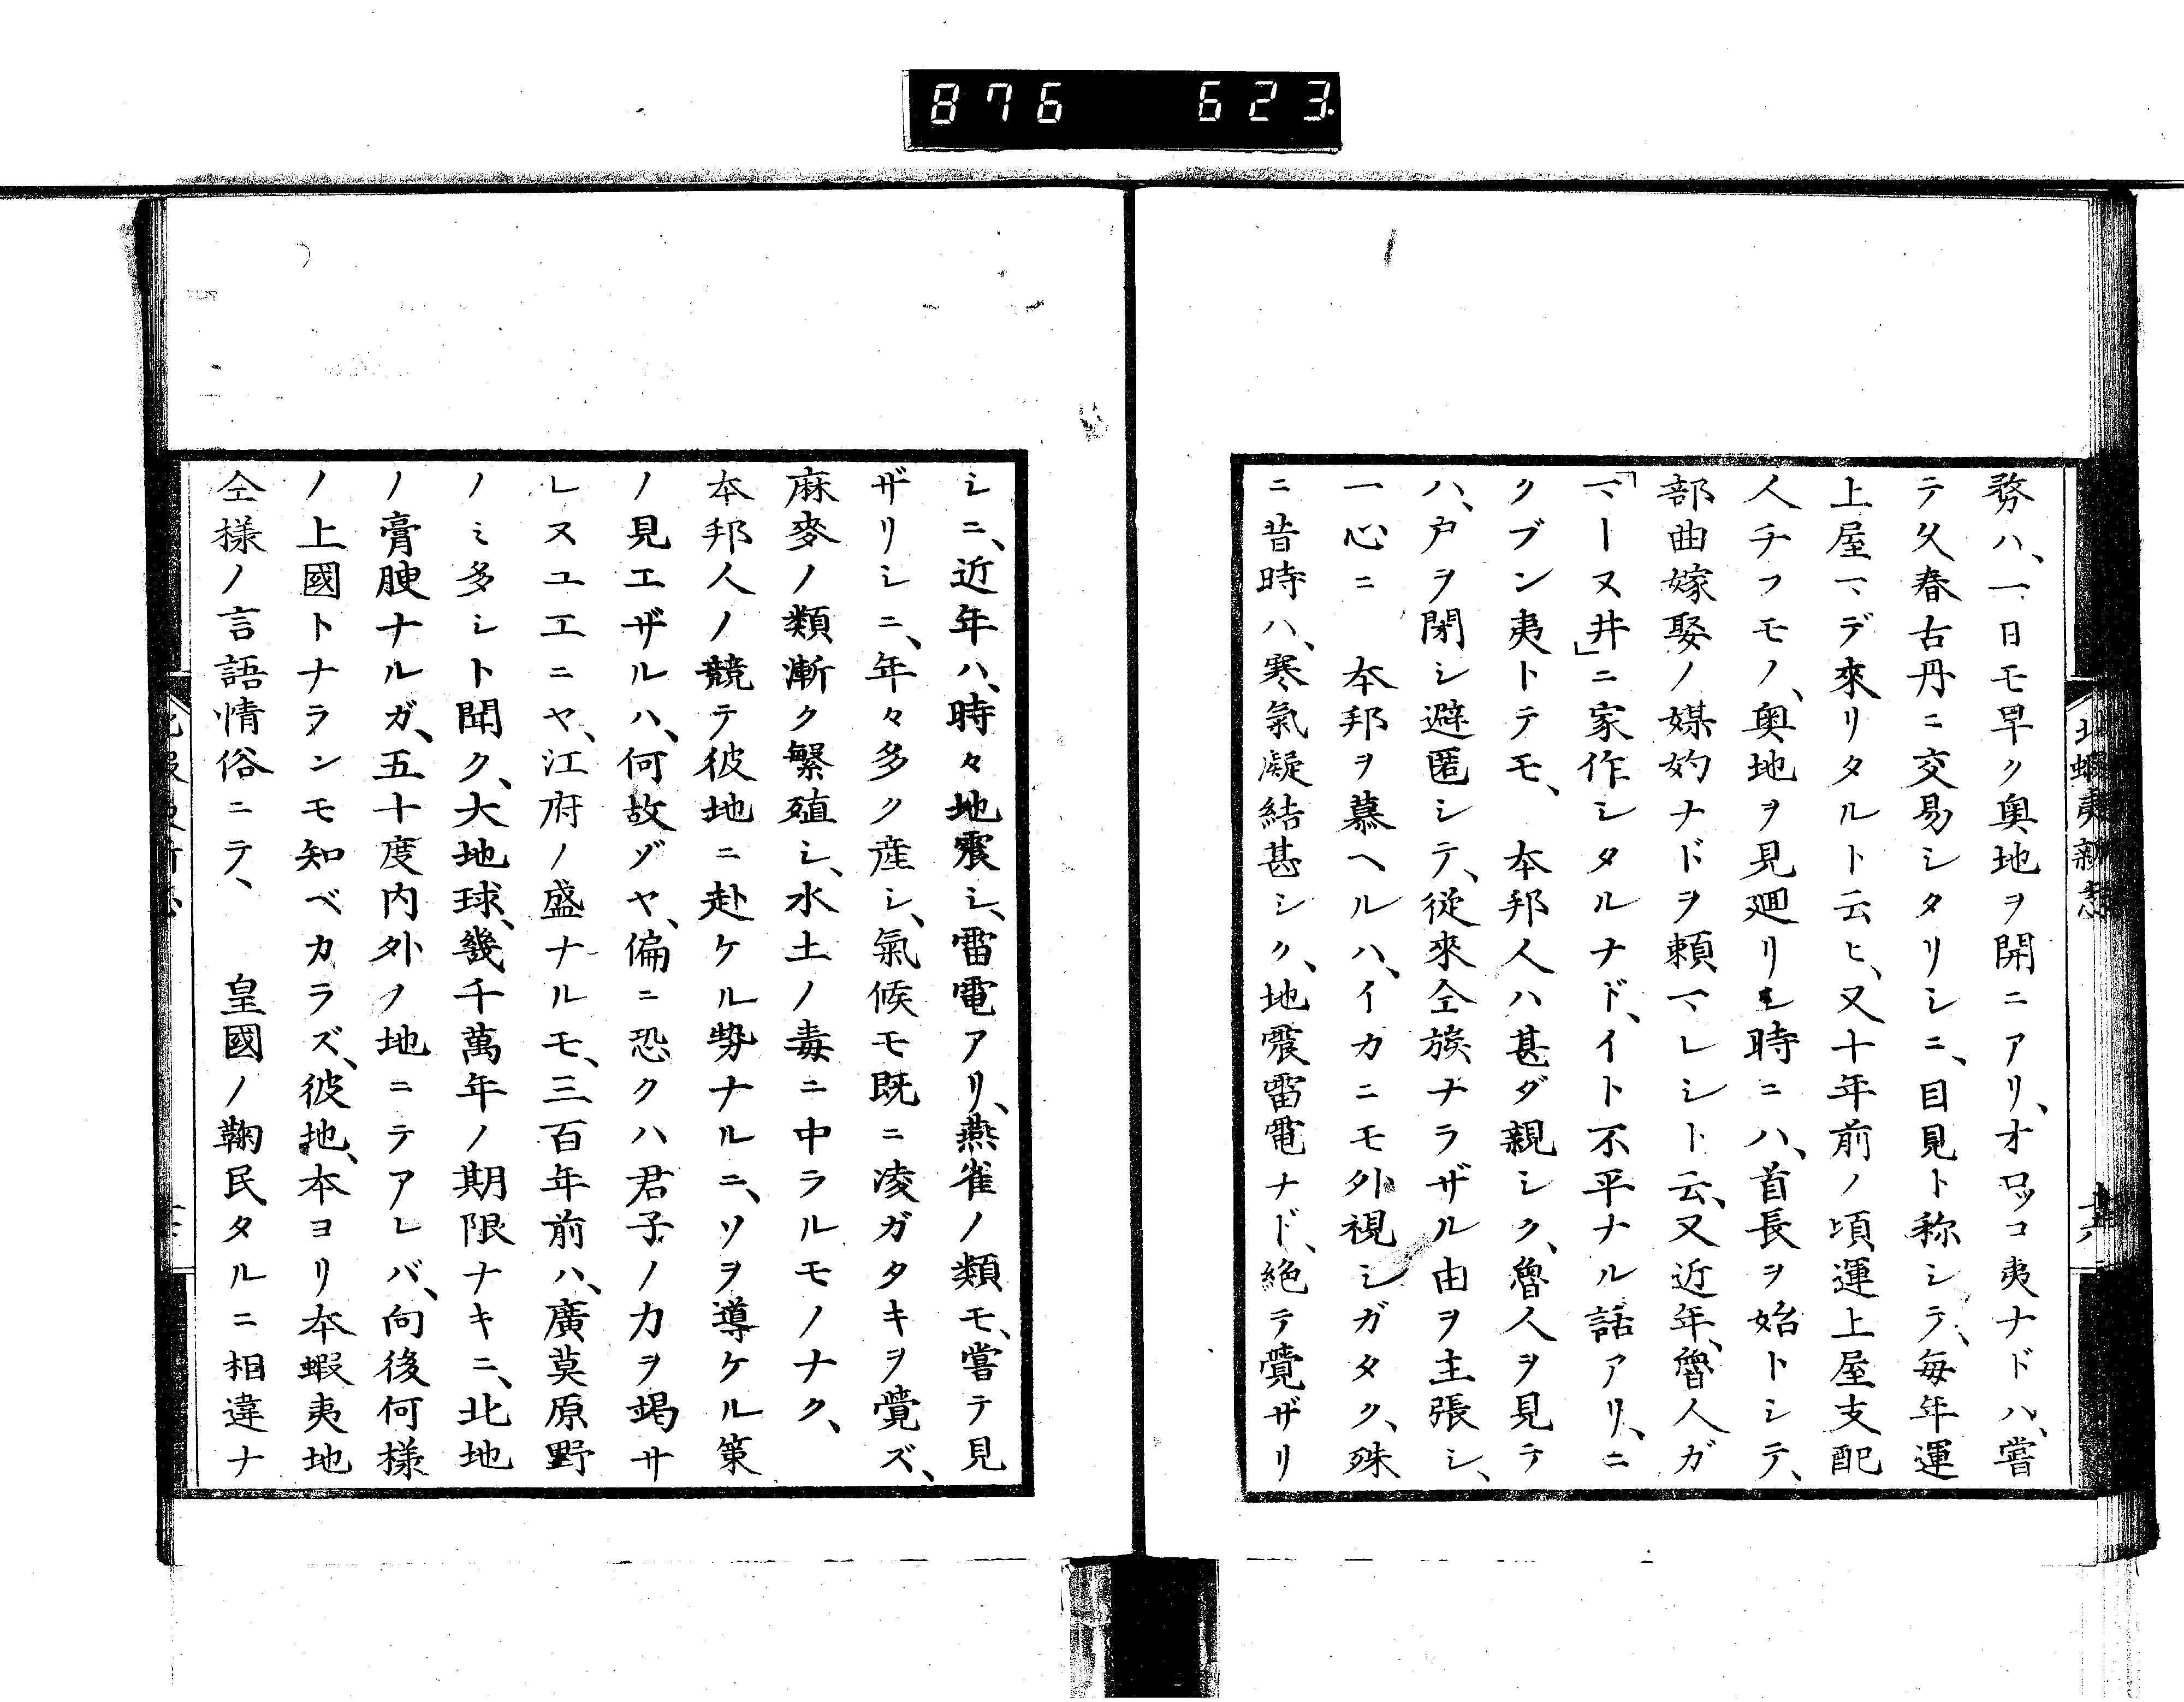 876 623
北蝦夷新志
務ハ、一日モ早ク奥地ヲ開ニアリ、オロッコ夷ナドハ、嘗
テ久春古丹ニ交易シタリシニ、目見ト称シテ、毎年運
上屋マデ來リタルト云ヒ、又十年前ノ頃運上屋支配
人チフモノ、奥地ヲ見廻リシ時ニハ、首長ヲ始トシテ、
部曲嫁娶ノ媒妁ナドヲ頼マレシト云、又近年、魯人ガ
「マーヌ井」ニ家作シタルナド、イト不平ナル話アリ、ニ
クブン夷トテモ、 本邦人ハ甚ダ親シク、魯人ヲ見テ
ハ、戸ヲ閉シ避匿シテ、從來仝族ナラザル由ヲ主張シ、
一心ニ 本邦ヲ慕ヘルハ、イカニモ外視シガタク、殊
ニ昔時ハ、寒氣凝結甚シク、地震雷電ナド、絶テ覺ザリ
シニ、近年ハ、時々地震シ、雷電アリ、燕雀ノ類モ、嘗テ見
ザリシニ、年々多ク産シ、氣候モ既ニ凌ガタキヲ覺ズ、
麻麥ノ類漸ク繁殖シ、水土ノ毒ニ中ラルモノナク、
本邦人ノ競テ彼地ニ赴ケル勢ナルニ、ソヲ導ケル策
ノ見エザルハ、何故ゾヤ、偏ニ恐クハ君子ノ力ヲ竭サ
レヌユエニヤ、江府ノ盛ナルモ、三百年前ハ、廣莫原野
ノミ多シト聞ク、大地球、幾千萬年ノ期限ナキニ、北地
ノ膏腴ナルガ、五十度内外ノ地ニテアレバ、向後何様
ノ上國トナランモ知ベカラズ、彼地、本ヨリ本蝦夷地
仝様ノ言語情俗ニテ、 皇國ノ鞠民タルニ相違ナ